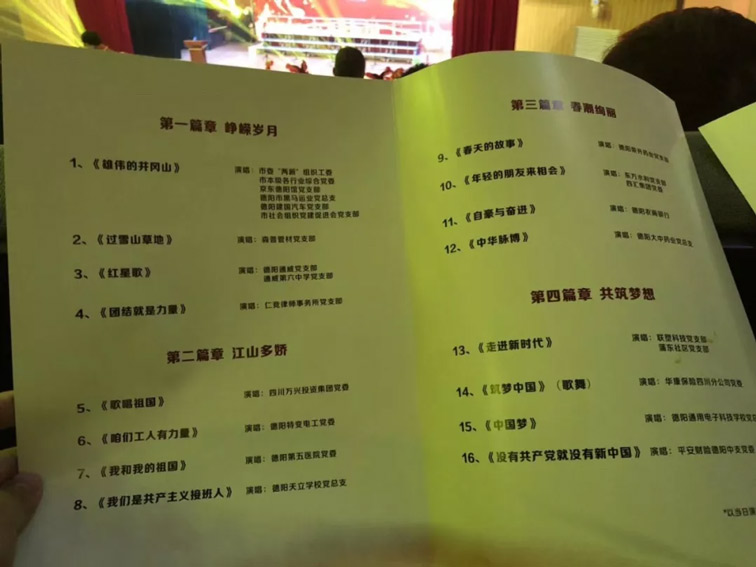 第一篇章 峥嵘岁月
1、《雄伟的井冈山》 演唱：市委“两新”组织工委
市本级各行业综合党委
京东德阳馆党支部
德阳市黑马运业党总支
德阳建国汽车党支部
市社会组织党建促进会党支部
2、《过雪山草地》 演唱：森普管材党支部
3、《红星歌》 演唱：德阳通威党支部
通威第六中学党支部
4、《团结就是力量》 演唱：仁竞律师事务所党支部
第二篇章 江山多娇
5、《歌唱祖国》 演唱：四川万兴投资集团党委
6、《咱们工人有力量》 演唱：德阳特变电工党委
7、《我和我的祖国》 演唱：德阳第五医院党委
8、《我们是共产主义接班人》 演唱：德阳天立学校党总支
第三篇章 春潮绚丽
9、《春天的故事》 演唱：德阳泰外商会党支部
10、《年轻的朋友来相会》 演唱：东方水利党支部
四汇集团党委
11、《自豪与奋进》 演唱：德阳农商银行
12、《中华脉搏》 演唱：德阳大中药业党总支
第四篇章 共筑梦想
13、《走进新时代》 演唱：联塑科技党支部
蒲东社区党支部
14、《筑梦中国》（歌舞） 演唱：华康保险四川分公司党委
15、《中国梦》 演唱：德阳通用电子科技学校党
16、《没有共产党就没有新中国》 演唱：平安财险德阳中支党委
*以当日演